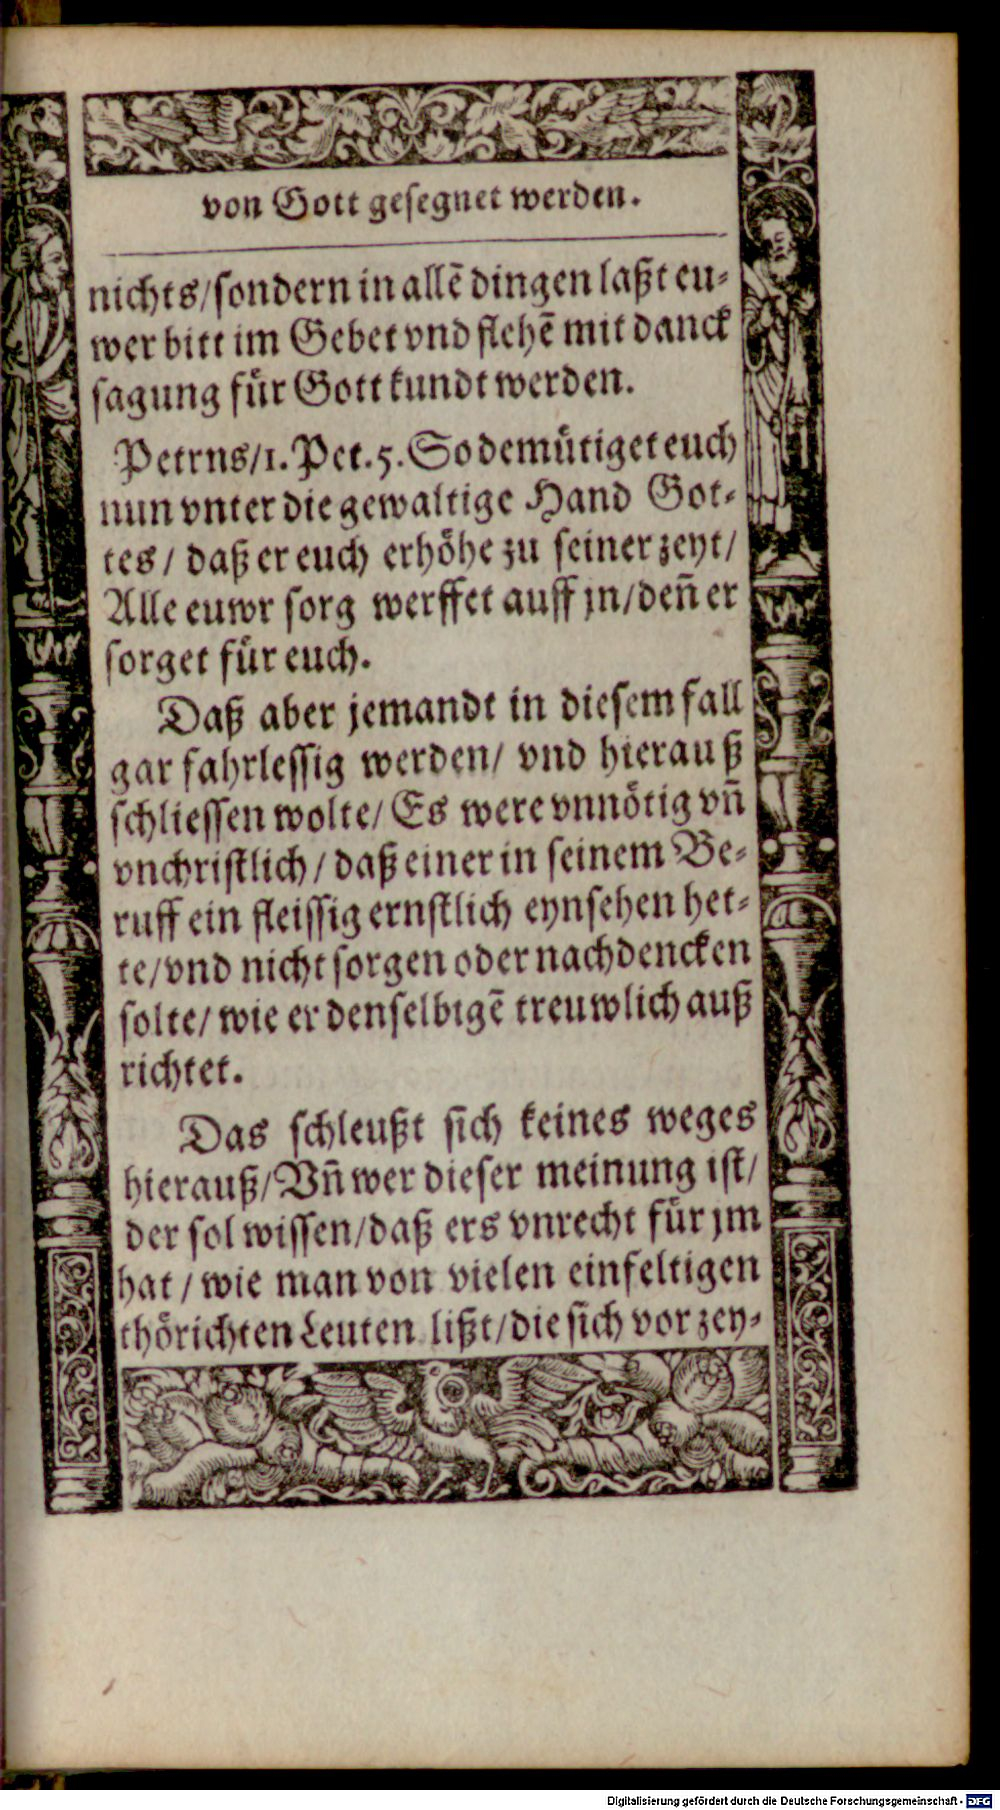 von Gott gesegnet werden.
nichts/sondern in allē dingen laßt eu-
wer bitt im Gebet vnd flehē mit danck
sagung fuͤr Gott kundt werden.
Petrns/1. Pet. 5. So demuͤtiget euch
nun vnter die gewaltige Hand Got-
tes / daß er euch erhoͤhe zu seiner zeyt/
Alle euwr sorg werffet auff jn/deñ er
sorget fuͤr euch.
Daß aber jemandt in diesem fall
gar fahrlessig werden/ vnd hierauß
schliessen wolte/ Es were vnnoͤtig vñ
vnchristlich / daß einer in seinem Be-
ruff ein fleissig ernstlich eynsehen het-
te/vnd nicht sorgen oder nachdencken
solte/ wie er denselbigē treuwlich auß
richtet.
Das schleußt sich keines weges
hierauß/Vñ wer dieser meinung ist/
der sol wissen/daß ers vnrecht fuͤr jm
hat / wie man von vielen einfeltigen
thoͤrichten Leuten lißt/die sich vor zey-
Digitalisierung gefördert durch die Deutsche Forschungsgemeinschaft - DFG